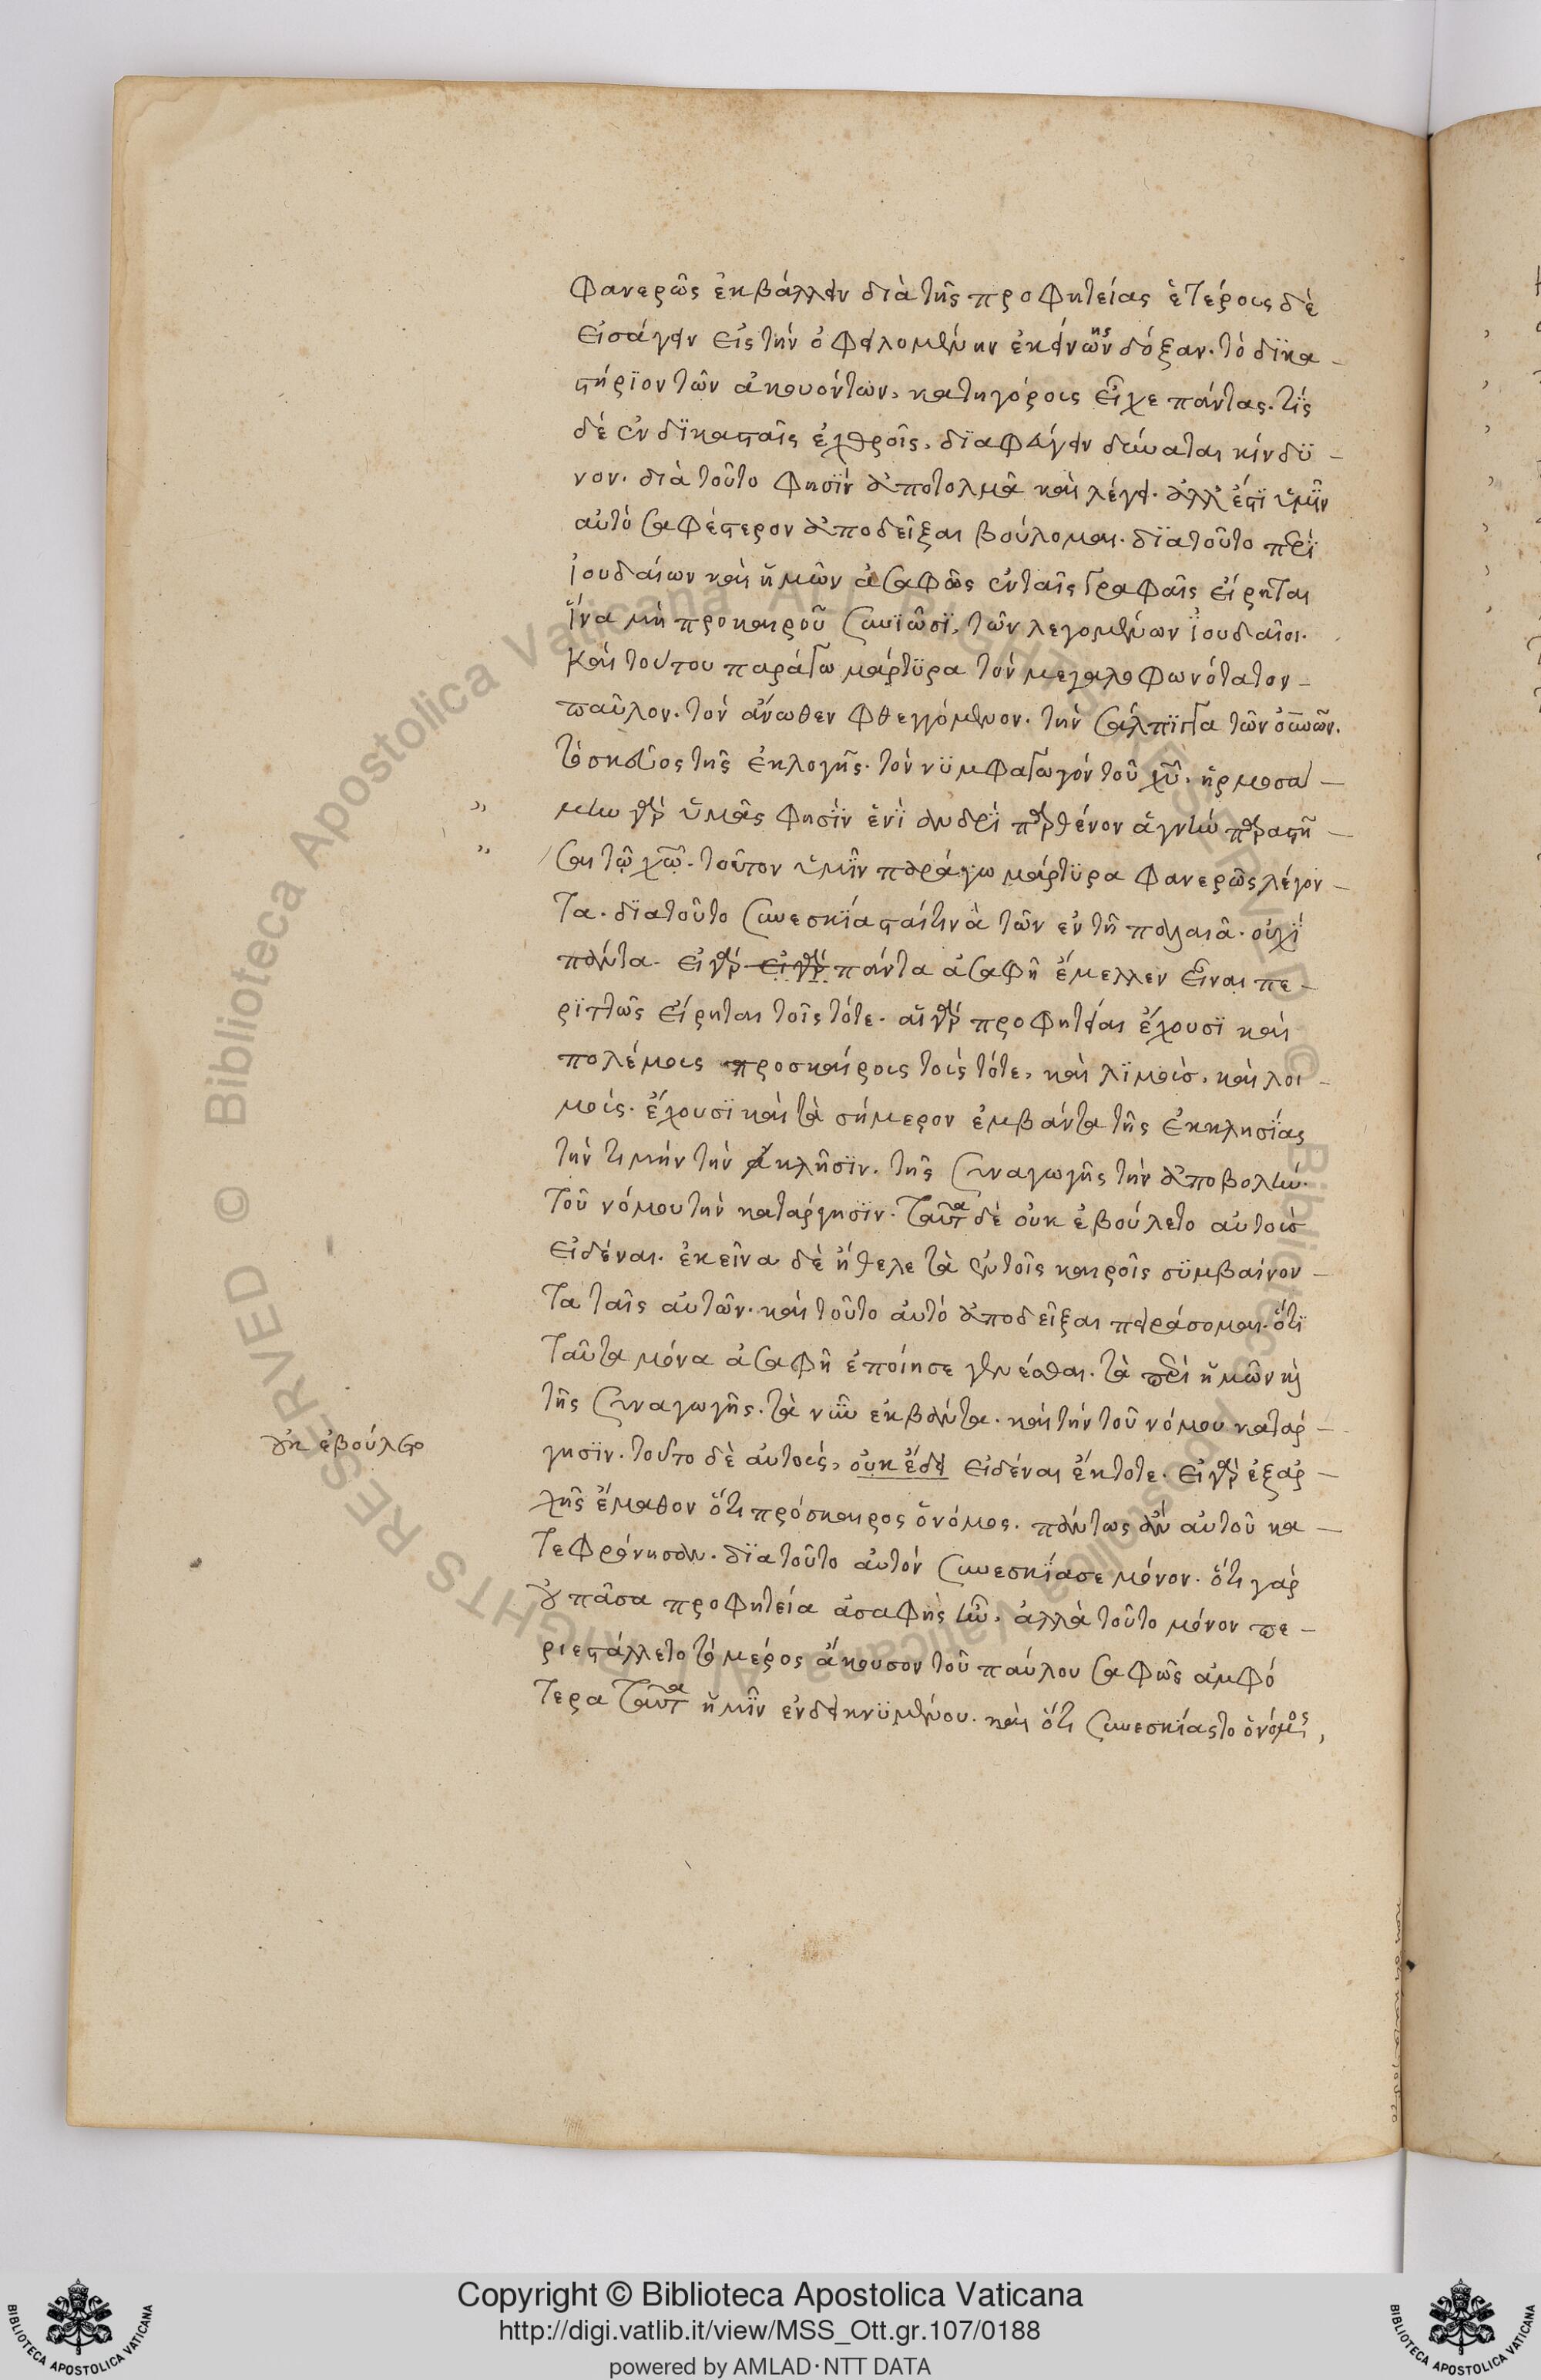 φανερῶς ἐκβάλλειν διὰ τῆς προφητείας ἑτέροις δὲ
εἰσάγειν εἰς τὴν ὀφειλομένην ἐκείνων ης δόξαν. τὸ δϊκα –
στήρϊον τῶν ἀκουόντων, κατηγόροις εἶχε πάντας. τίς
δὲ ἐν δϊκασταῖς ἐχθροῖς, δϊαφύγειν δύναται κίνδϋ –
νον. διὰ τοῦτο φησὶν ἀποτολμᾶ καὶ λέγει. ἀλλ' ἔστϊ ὑμῖν
αὐτὸ σαφέστερον ἀποδεῖξαι βούλομαι. δϊατοῦτο περὶ
ἰουδαίων καὶ ἡμῶν ἀσαφῶς ἐν ταῖς γραφαῖς εἴρηται
ἵνα μὴ προκαιροῦ συνϊῶσϊ, τῶν λεγομένων ἰουδαῖοι.
καὶ τούτου παράγω μάρτϋρα τὸν μεγαλοφωνότατον –
παῦλον. τὸν ἄνωθεν φθεγγόμενον. τὴν σάλπϊγγα τῶν οὐνῶν.
τὸ σκεῦος τῆς ἐκλογῆς. τὸν νϋμφαγωγὸν τοῦ χῦ. ἡρμοσά –
μην γὰρ ὑμᾶς φησὶν ἑνὶ ἀνδρὶ παρθένον ἁγνὴν παραστῆ –
σαι τῷ χῶ. τοῦτον ὑμῖν παράγω μάρτϋρα φανερῶς λέγον –
τα. δϊατοῦτο συνεσκίασταί τινὰ τῶν ἐν τῆ παλαιᾶ. οὐχὶ
πάντα. εἰ γὰρ εἰ γὰρ πάντα ἀσαφῆ ἔμελλεν εἶναι πε –
ρϊττῶς εἴρηται τοῖς τότε. αἱ γὰρ προφητεῖαι ἔχουσϊ καὶ
πολέμοις προσκαίροις τοῖς τότε, καὶ λϊμοὶς, καὶ λοι –
μοίς. ἔχουσϊ καὶ τὰ σήμερον ἐμβάντα τῆς ἐκκλησίας
τὴν τιμὴν τὴν κλῆσϊν. τῆς συναγωγῆς τὴν ἀποβολὴν.
τοῦ νόμου τὴν κατάργησϊν. ταῦτα δὲ οὐκ ἐβούλετο αὐτοὶς
εἰδέναι. ἐκεῖνα δὲ ἤθελε τὰ ἐν τοῖς καιροῖς σϋμβαίνον –
τα ταῖς αὐτῶν. καὶ τοῦτο αὐτὸ ἀποδεῖξαι πειράσομαι. ὅτϊ
ταῦτα μόνα ἀσαφῆ ἐποίησε γενέσθαι. τὰ περὶ ἡμῶν κὶ
τῆς συναγωγῆς. τὰ νῦν ἐκβάντα. καὶ τὴν τοῦ νόμου κατάρ –
γησϊν. τοῦτο δὲ αὐτοὶς, οὐκ ἔδει εἰδέναι ἔκτοτε. εἰ γὰρ ἐξαρ –
οὐκ ἐβούλετο
χῆς ἔμαθον ὅτι πρόσκαιρος ὁ νόμος. πάντως ἂν αὐτοῦ κα –
τεφρόνησαν. δϊατοῦτο αὐτὸν συνεσκίασε μόνον. ὅτι γὰρ
οὐ πᾶσα προφητεία ἀσαφὴς ἦν, ἀλλὰ τοῦτο μόνον πε –
ριεστάλλετο τὸ μέρος ἄκουσον τοῦ παύλου σαφῶς ἀμφό
τερα ταῦτα ἡμῖν ἐνδεικνϋμένου. καὶ ὅτι συνεσκίαστο ὁ νόμος,